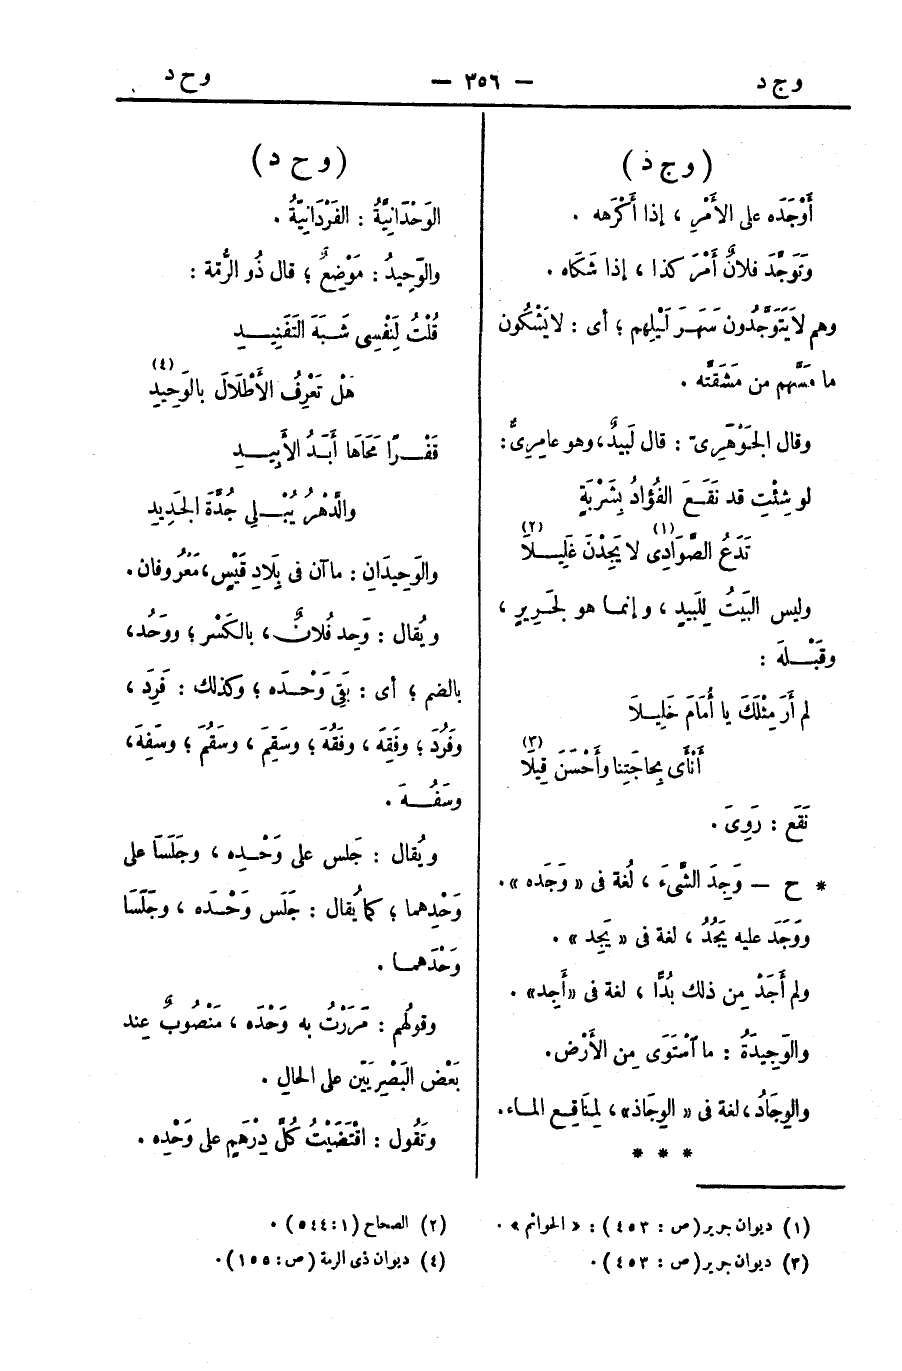 وج د — ٣٥٦ — وح د
(وج د)
أَوْجَدَه على الأَمْرِ ، إذا أَكْرَهه .
وَتَوَجَّدَ فلانٌ أَمْرَ كذا ، إذا شَكَاه .
وهم لَا يَتَوَجَّدُون سَهَرَ لَيْلِهم ؛ أى : لا يَشْكُون
ما مَسَّهم من مَشَقَّتِه .
وقال الجَوْهَرِىّ : قال لَبِيدٌ ، وهو عامِرِىٌّ :
لو شِئْتِ قد نَقَعَ الفُؤادُ بِشَرْبَةٍ
تَدَعُ الصَّوَادِى (١) لا يَجِدْنَ غَلِيـلَا (٢)
وليس البَيْتُ لِلَبِيدٍ ، وإنمـا هو لجَرِيرٍ ،
وقَبْـلَه :
لم أَرَ مِثْلَكَ يا أُمَامَ خَلِيـلَا
أَنْأَى بِحاجَتِنا وأَحْسَنَ قِيلَا (٣)
نَقَع : رَوِىَ .
* ح — وَجِدَ الشَّىْءَ ، لُغة فى « وَجَده » .
ووَجَد عليه يَجُدُ ، لغة فى « يَجِد » .
ولم أَجَدْ مِن ذلك بُدًّا ، لغة فى « أَجِد » .
والوَجِيدَةُ : ما ٱسْتَوَى مِن الأَرْض .
والوِجَادُ ، لغة فى « الوِجَاذ » ، لِمَنَاقِع المـاء .
* * *
(وح د)
الوَحْدَانِيَّةُ : الفَرْدَانِيّةُ .
والوَحِيدُ : مَوْضِعٌ ؛ قال ذُو الرُّمة :
قُلْتُ لِنَفْسِى شَبَهَ التَفْنِيـدِ
هَلْ تَعْرِفُ الأَطْلَالَ بالوَحِيدِ (٤)
قَفْـرًا مَحَاهَا أَبَدُ الأَبِيـدِ
والدَّهْرُ يُبْـلِى جُدَّةَ الجَدِيدِ
والوَحِيدَانِ : ماآن فى بِلَادِ قَيْسٍ ، مَعْرُوفان .
ويُقال : وَحِد فُلانٌ ، بالكَسْر ؛ ووَحُد ،
بالضم ؛ أى : بَقِىَ وَحْـدَه ؛ وكذلك : فَرِدَ ،
وفَرُدَ ؛ وفَقِهَ ، وفَقُهَ ؛ وسَقِمَ ، وسَقُمَ ؛ وسَفِهَ ،
وسَفُـهَ .
ويُقال : جَلس على وَحْـدِه ، وجَلَسَا على
وَحْدِهما ؛ كما يُقال : جَلَس وَحْـدَه ، وجَلَسَا
وَحْدَهمـا .
وقولُهم : مَرَرْتُ به وَحْدَه ، مَنْصُوبٌ عِند
بَعْض البَصْرِيِّيْن على الحَالِ .
وتَقُول : اقْتَضَيْتُ كُلَّ دِرْهَمٍ على وَحْدِه .
(١) ديوان جرير (ص : ٤٥٣) : « الحوائم » . (٢) الصحاح (١ : ٥٤٤) .
(٣) ديوان جرير (ص : ٤٥٣) . (٤) ديوان ذى الرمة (ص : ١٥٥) .